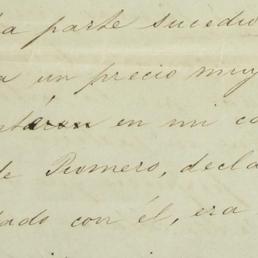 la parte sucedio
a un precio muy
ntaron en mi ca
de Romero, decla
dado con él, era